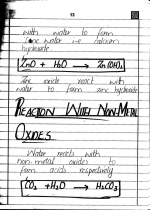 13
with water to form
lime water i.e calcium
hydroxide
ZnO + H₂O → Zn(OH)₂
Zinc oxide react with
water to form zinc hydroxide
REACTION WITH NON-METAL
OXIDES
Water reacts with
non-metal oxides to
form acids respectively
CO₂ + H₂O → H₂CO₃